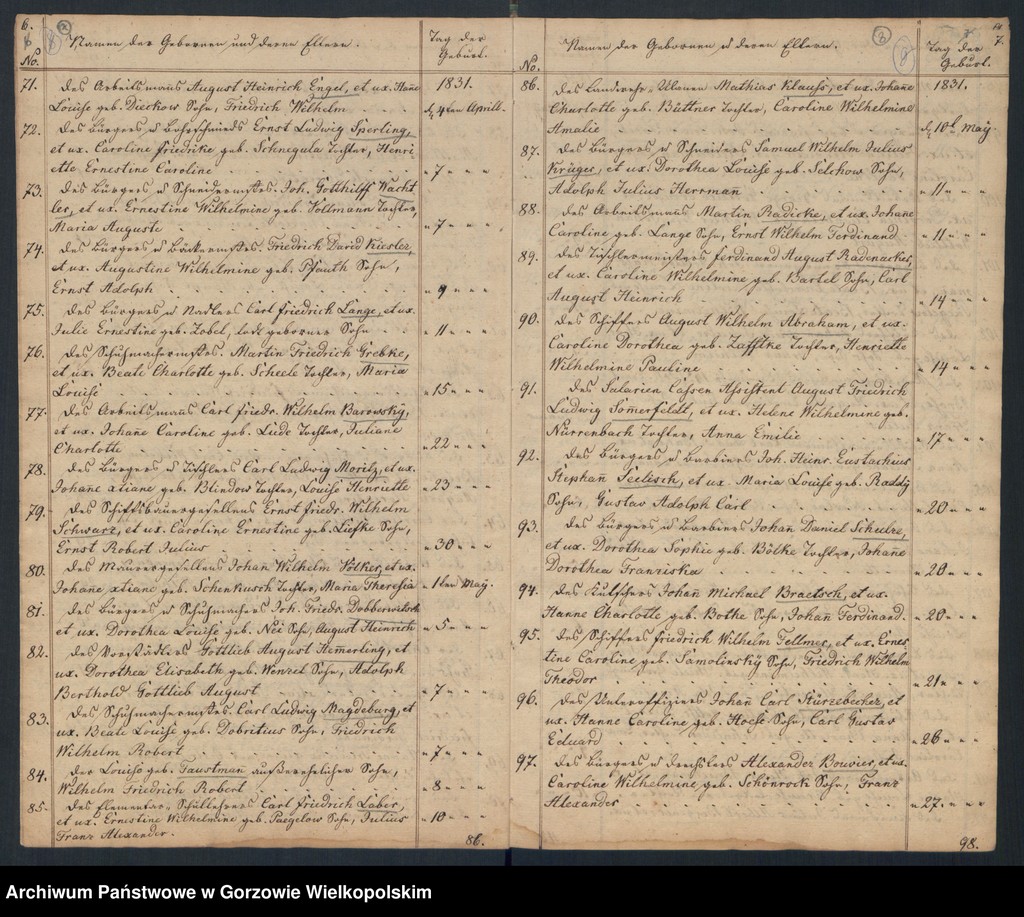 6.
Namen der Gebornen und deren Eltern.
Tag der
Geburt.
No.
71. Des Arbeitsmans August Heinrich Engel, et ux. Hane
1831.
Louise geb. Dieckow Sohn, Friedrich Wilhelm
d. 4ten Aprill.
72. Des Bürgers u Bohrschmieds Ernst Ludwig Sperling,
et ux. Caroline Friedrike geb. Schnegula Tochter, Henri-
ette Ernestine Caroline
" 7 " " "
73. Des Bürgers u Schneidermstrs. Joh. Gotthilff Wacht
ler, et ux. Ernestine Wilhelmine geb. Vollmann Tochter,
Maria Auguste
" 7 " " "
74. Des Bürgers u Bäckermstrs. Friedrich David Kiesler,
et ux. Augustine Wilhelmine geb. Pfauth Sohn,
Ernst Adolph
" 9 " " "
75. Des Bürgers u Nadlers Carl Friedrich Lange, et ux.
Julie Ernestine geb. Zobel, todt geborner Sohn
" 11 " " "
76. Des Schuhmachermstrs. Martin Friedrich Grebke,
et ux. Beate Charlotte geb. Scheele Tochter, Maria
Louise
" 15 " " "
77. Des Arbeitsmans Carl Friedr. Wilhelm Barowsky,
et ux. Johane Caroline geb. Lüde Tochter, Juliane
Charlotte
" 22 " " "
78. Des Bürgers u Tischlers Carl Ludwig Moritz, et ux.
Johane xtiane geb. Blindow Tochter, Louise Henriette
" 23 " " "
79. Des Schiffsbauergesellens Ernst Friedr. Wilhelm
Schwarz, et ux. Caroline Ernestine geb. Liefke Sohn,
Ernst Robert Julius
" 30 " " "
80. Des Maurergesellens Johan Wilhelm Völker, et ux.
Johane xtiane geb. Schenkusch Tochter, Maria Theresia
" 1ten May.
81. Des Bürgers u Schuhmachers Joh. Friedr. Dobberwitsch
et ux. Dorothea Louise geb. Neie Sohn, August Heinrich
" 5 " " "
82. Des Vorstädters Gottlieb August Hemerling, et
ux. Dorothea Elisabeth geb. Wenzel Sohn, Adolph
Berthold Gottlieb August
" 7 " " "
83. Des Schuhmachermstrs. Carl Ludwig Magdeburg, et
ux. Beate Louise geb. Dobritius Sohn, Friedrich
Wilhelm Robert
" 7 " " "
84. Der Louise geb. Faustman außerehelicher Sohn,
Wilhelm Friedrich Robert
" 8 " " "
85. Des Elementar-Schullehrers Carl Friedrich Laber,
et ux. Ernestine Wilhelmine geb. Paegelow Sohn, Julius
" 10 " " "
Franz Alexander.
86.
7.
Namen der Gebornen u deren Eltern.
Tag der
Geburt.
No.
86. Des Landwehr-Ulanen Mathias Klauss, et ux. Johane
1831.
Charlotte geb. Büttner Tochter, Caroline Wilhelmine
Amalie
d. 10t. May.
87. Des Bürgers u Schneiders Samuel Wilhelm Julius
Krüger, et ux. Dorothea Louise geb. Selchow Sohn,
Adolph Julius Herrman
" 11 " " "
88. Des Arbeitsmans Martin Radicke, et ux. Johane
Caroline geb. Lange Sohn, Ernst Wilhelm Ferdinand
" 11 " " "
89. Des Tischlermeisters Ferdinand August Radenacker,
et ux. Caroline Wilhelmine geb. Bartel Sohn, Carl
August Heinrich
" 14 " " "
90. Des Schiffers August Wilhelm Abraham, et ux.
Caroline Dorothea geb. Zafftke Tochter, Henriette
Wilhelmine Pauline
" 14 " " "
91. Des Salarien Cassen Assistent August Friedrich
Ludwig Somerfeldt, et ux. Helene Wilhelmine geb.
Nürrenbach Tochter, Anna Emilie
" 17 " " "
92. Des Bürgers u Barbiers Joh. Heinr. Eustachius
Stephan Seelesch, et ux. Maria Louise geb. Raddy
Sohn, Gustav Adolph Carl
" 20 " " "
93. Des Bürgers u Barbiers Johan Daniel Schulze,
et ux. Dorothea Sophie geb. Bölke Tochter, Johane
Dorothea Franziska
" 20 " " "
94. Des Kutschers Johan Michael Braetsch, et ux.
Hanne Charlotte geb. Bothe Sohn, Johan Ferdinand
" 20 " " "
95. Des Schiffers Friedrich Wilhelm Fellmer, et ux. Ernes
tine Caroline geb. Samolinsky Sohn, Friedrich Wilhelm
Theodor
" 21 " " "
96. Des Unterofficiers Johan Carl Stürzebecher, et
ux. Hanne Caroline geb. Hoese Sohn, Carl Gustav
Eduard
" 26 " " "
97. Des Bürgers u Drechslers Alexander Bouvier, et ux.
Caroline Wilhelmine geb. Schönrock Sohn, Franz
Alexander
" 27 " " "
98.
Archiwum Państwowe w Gorzowie Wielkopolskim